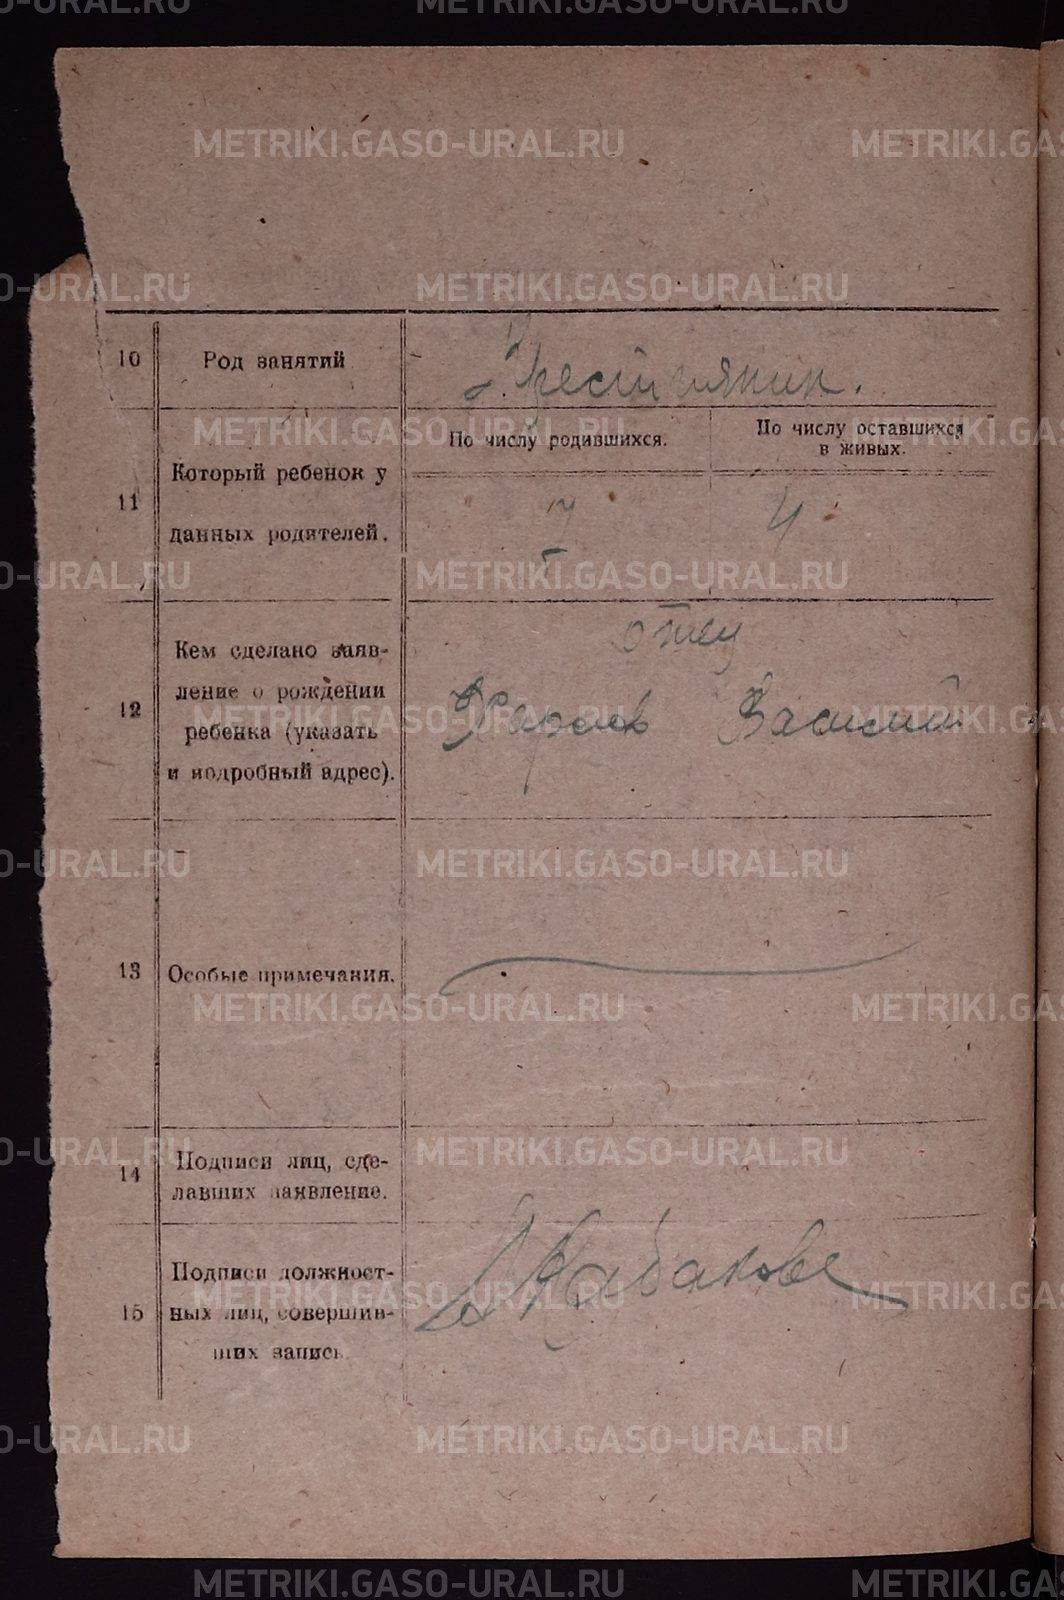 METRIKI.GASO-URAL.RU
10 Род занятий Крестьянин.
11 Который ребенок у данных родителей.
По числу родившихся.
По числу оставшихся
в живых.
7 4
12 Кем сделано заяв-
ление о рождении
ребенка (указать
и подробный адрес).
отец
Василий
13 Особые примечания.
14 Подписи лиц, сде-
лавших заявление.
15 Подписи должност-
ных лиц, совершив-
ших запись